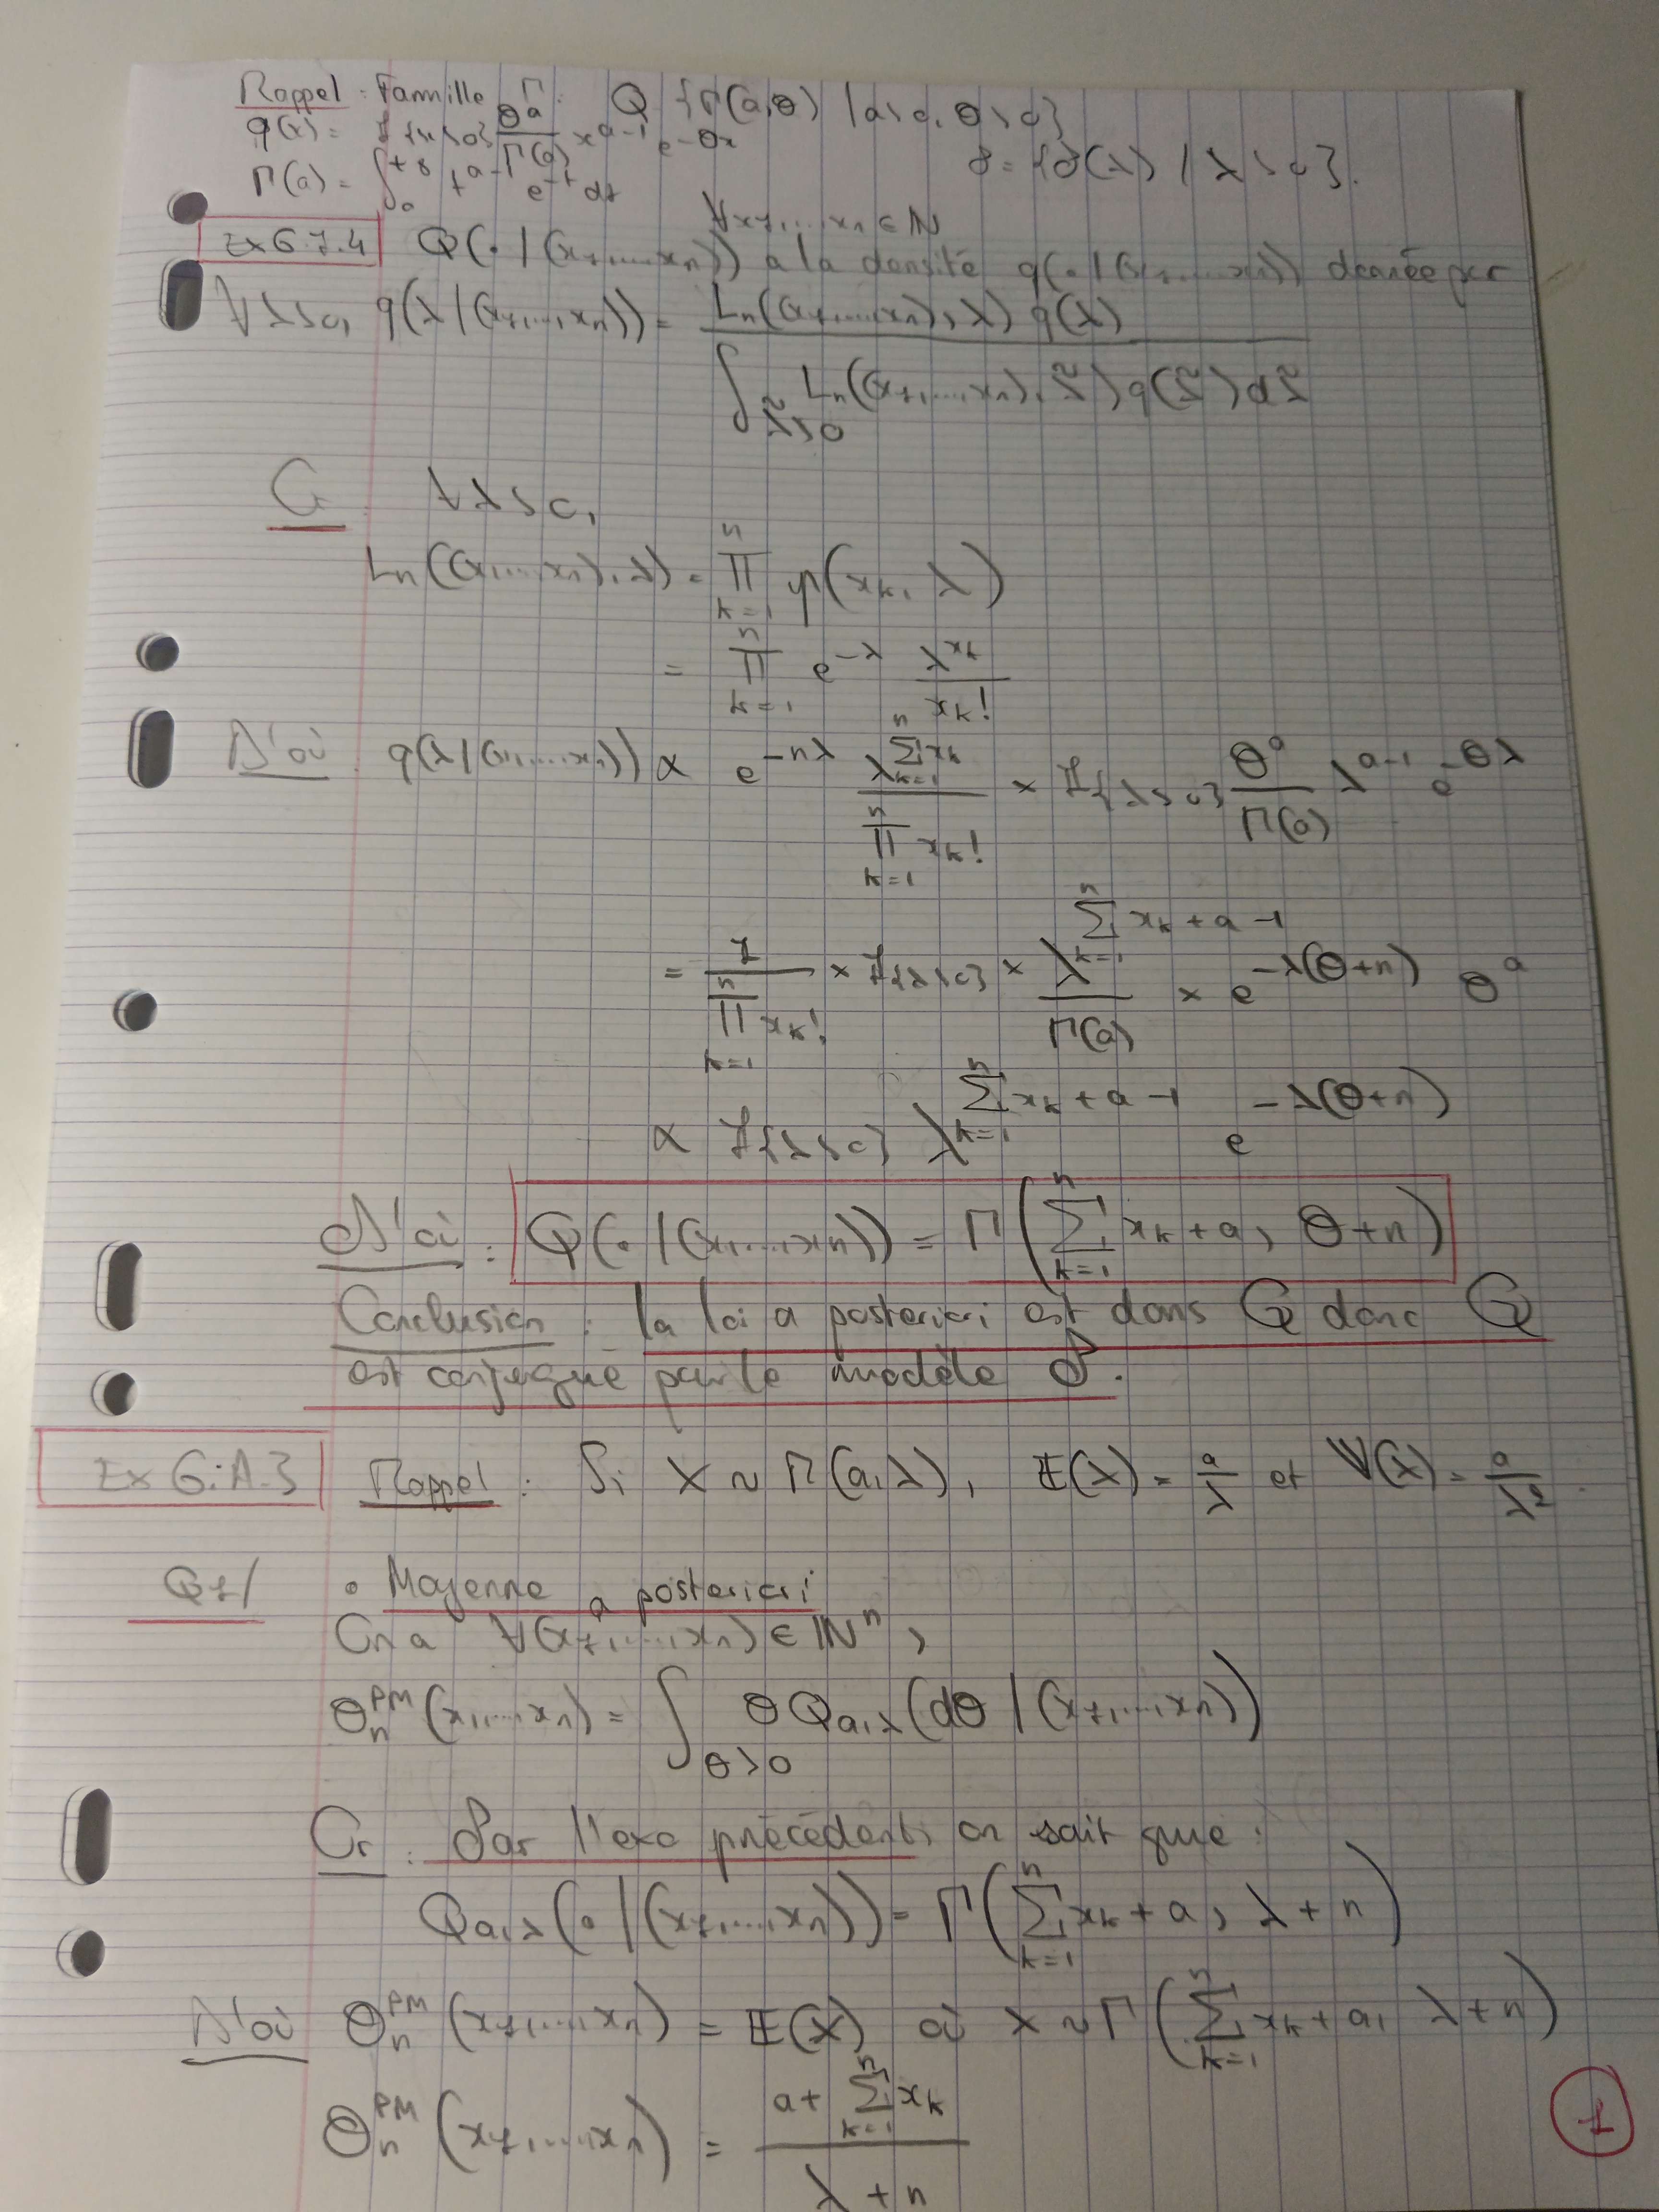 Rappel : Famille Γ : Q {Γ(a,θ) | a>0, θ>0}
q(x) = 1{x>0} θ^a/Γ(a) x^{a-1} e^{-θx}
Γ(a) = ∫_0^{+∞} t^{a-1} e^{-t} dt
P = {P(λ) / λ>0}.
∀x1,...,xn ∈ ℕ
Ex 6.1.4 Q(. | (x1,...,xn)) a la densité q(. | (x1,...,xn)) donnée par
∀λ>0, q(λ | (x1,...,xn)) = Ln((x1,...,xn), λ) q(λ) / ∫_{λ̃>0} Ln((x1,...,xn), λ̃) q(λ̃) dλ̃
Or ∀λ>0,
Ln((x1,...,xn), λ) = ∏_{k=1}^n p(xk, λ)
= ∏_{k=1}^n e^{-λ} λ^{xk}/xk!
D'où q(λ | (x1,...,xn)) ∝ e^{-nλ} λ^{∑_{k=1}^n xk} / ∏_{k=1}^n xk! × 1{λ>0} θ^a/Γ(a) λ^{a-1} e^{-θλ}
= 1/∏_{k=1}^n xk! × 1{λ>0} × λ^{∑_{k=1}^n xk + a - 1}/Γ(a) × e^{-λ(θ+n)} θ^a
∝ 1{λ>0} λ^{∑_{k=1}^n xk + a - 1} e^{-λ(θ+n)}
D'où : Q(. | (x1,...,xn)) = Γ(∑_{k=1}^n xk + a, θ+n)
Conclusion : la loi a posteriori est dans Q donc Q
est conjugué pour le modèle P.
Ex 6.A.3 Rappel : Si X ~ Γ(a,λ), E(X) = a/λ et V(X) = a/λ².
Q1/ • Moyenne a posteriori
On a ∀(x1,...,xn) ∈ ℕ^n,
θ_n^{PM}(x1,...,xn) = ∫_{θ>0} θ Q_{a,λ}(dθ | (x1,...,xn))
Or : Par l'exo précédent, on sait que :
Q_{a,λ}(. | (x1,...,xn)) = Γ(∑_{k=1}^n xk + a, λ + n)
D'où θ_n^{PM}(x1,...,xn) = E(X) où X ~ Γ(∑_{k=1}^n xk + a, λ+n)
θ_n^{PM}(x1,...,xn) = (a + ∑_{k=1}^n xk) / (λ + n)
1